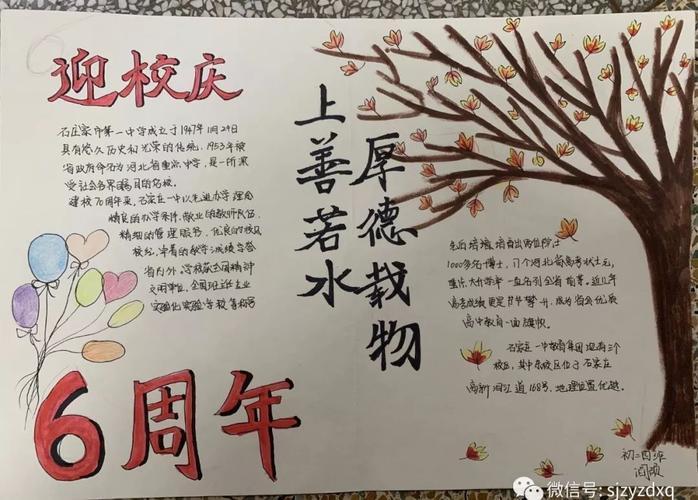 迎校庆
石庄家市第一中学成立于1947年11月29日
具有悠久历史和光荣的传统，1953年被
省政府命名为河北省重点中学，是一所深
受社会各界瞩目的名校。
建校70周年来，石家庄一中以先进办学理念
精良的办学条件，敬业的教师队伍
精细的管理服务，优良的校风
校纪，卓著的教学成绩享誉
省内外，学校获全国精神
文明单位，全国
实验化实验学校等称号
上善若水
厚德载物
先后培养，培育出两位院士
1000多名博士，11个河北省高考状元，
重点大学升学率一直名列全省前茅，近几年
高考成绩更是节节攀升，成为省会优质
高中教育一面旗帜。
石家庄一中教育集团现有三个
校区，其中东校区位于石家庄
高新湘江道168号，地理位置优越。
6周年
初二四班
微信号: sjzyzdxq